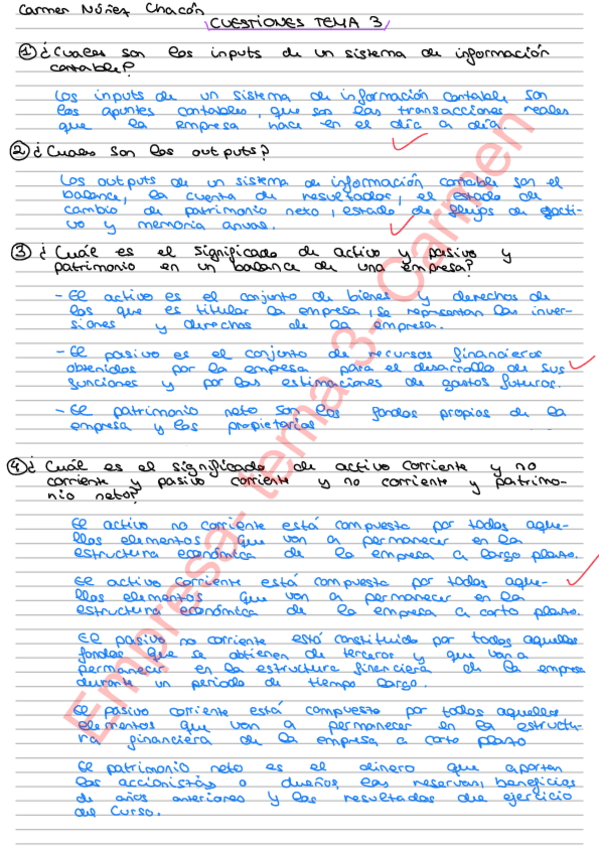 Carmen Núñez Chacón
CUESTIONES TEMA 3
① ¿Cuales son los inputs de un sistema de información
contable?
Los inputs de un sistema de información contable son
los apuntes contables, que son las transacciones reales
que la empresa hace en el día a día.
② ¿Cuales son los outputs?
Los outputs de un sistema de información contable son el
balance, la cuenta de resultados, el estado de
cambio de patrimonio neto, estado de flujos de efecti-
vo y memoria anual.
③ ¿Cuál es el significado de activo y pasivo y
patrimonio en un balance de una empresa?
- El activo es el conjunto de bienes y derechos de
los que es titular la empresa, se representan las inver-
siones y derechos de la empresa.
- El pasivo es el conjunto de recursos financieros
obtenidos por la empresa para el desarrollo de sus
funciones y por las estimaciones de gastos futuros.
- El patrimonio neto son los fondos propios de la
empresa y los propietarios
④ ¿Cuál es el significado de activo corriente y no
corriente y pasivo corriente y no corriente y patrimo-
nio neto?
El activo no corriente está compuesto por todos aque-
llos elementos que van a permanecer en la
estructura económica de la empresa a largo plazo.
El activo corriente está compuesto por todos aque-
llos elementos que van a permanecer en la
estructura económica de la empresa a corto plazo.
El pasivo no corriente está constituido por todos aquellos
fondos que se obtienen de terceros y que van a
permanecer en la estructura financiera de la empresa
durante un periodo de tiempo largo.
El pasivo corriente está compuesto por todos aquellos
elementos que van a permanecer en la estructu-
ra financiera de la empresa a corto plazo
El patrimonio neto es el dinero que aportan
los accionistas o dueños, las reservas, beneficios
de años anteriores y los resultados del ejercicio
del curso.
Empresa- tema 3- Carmen